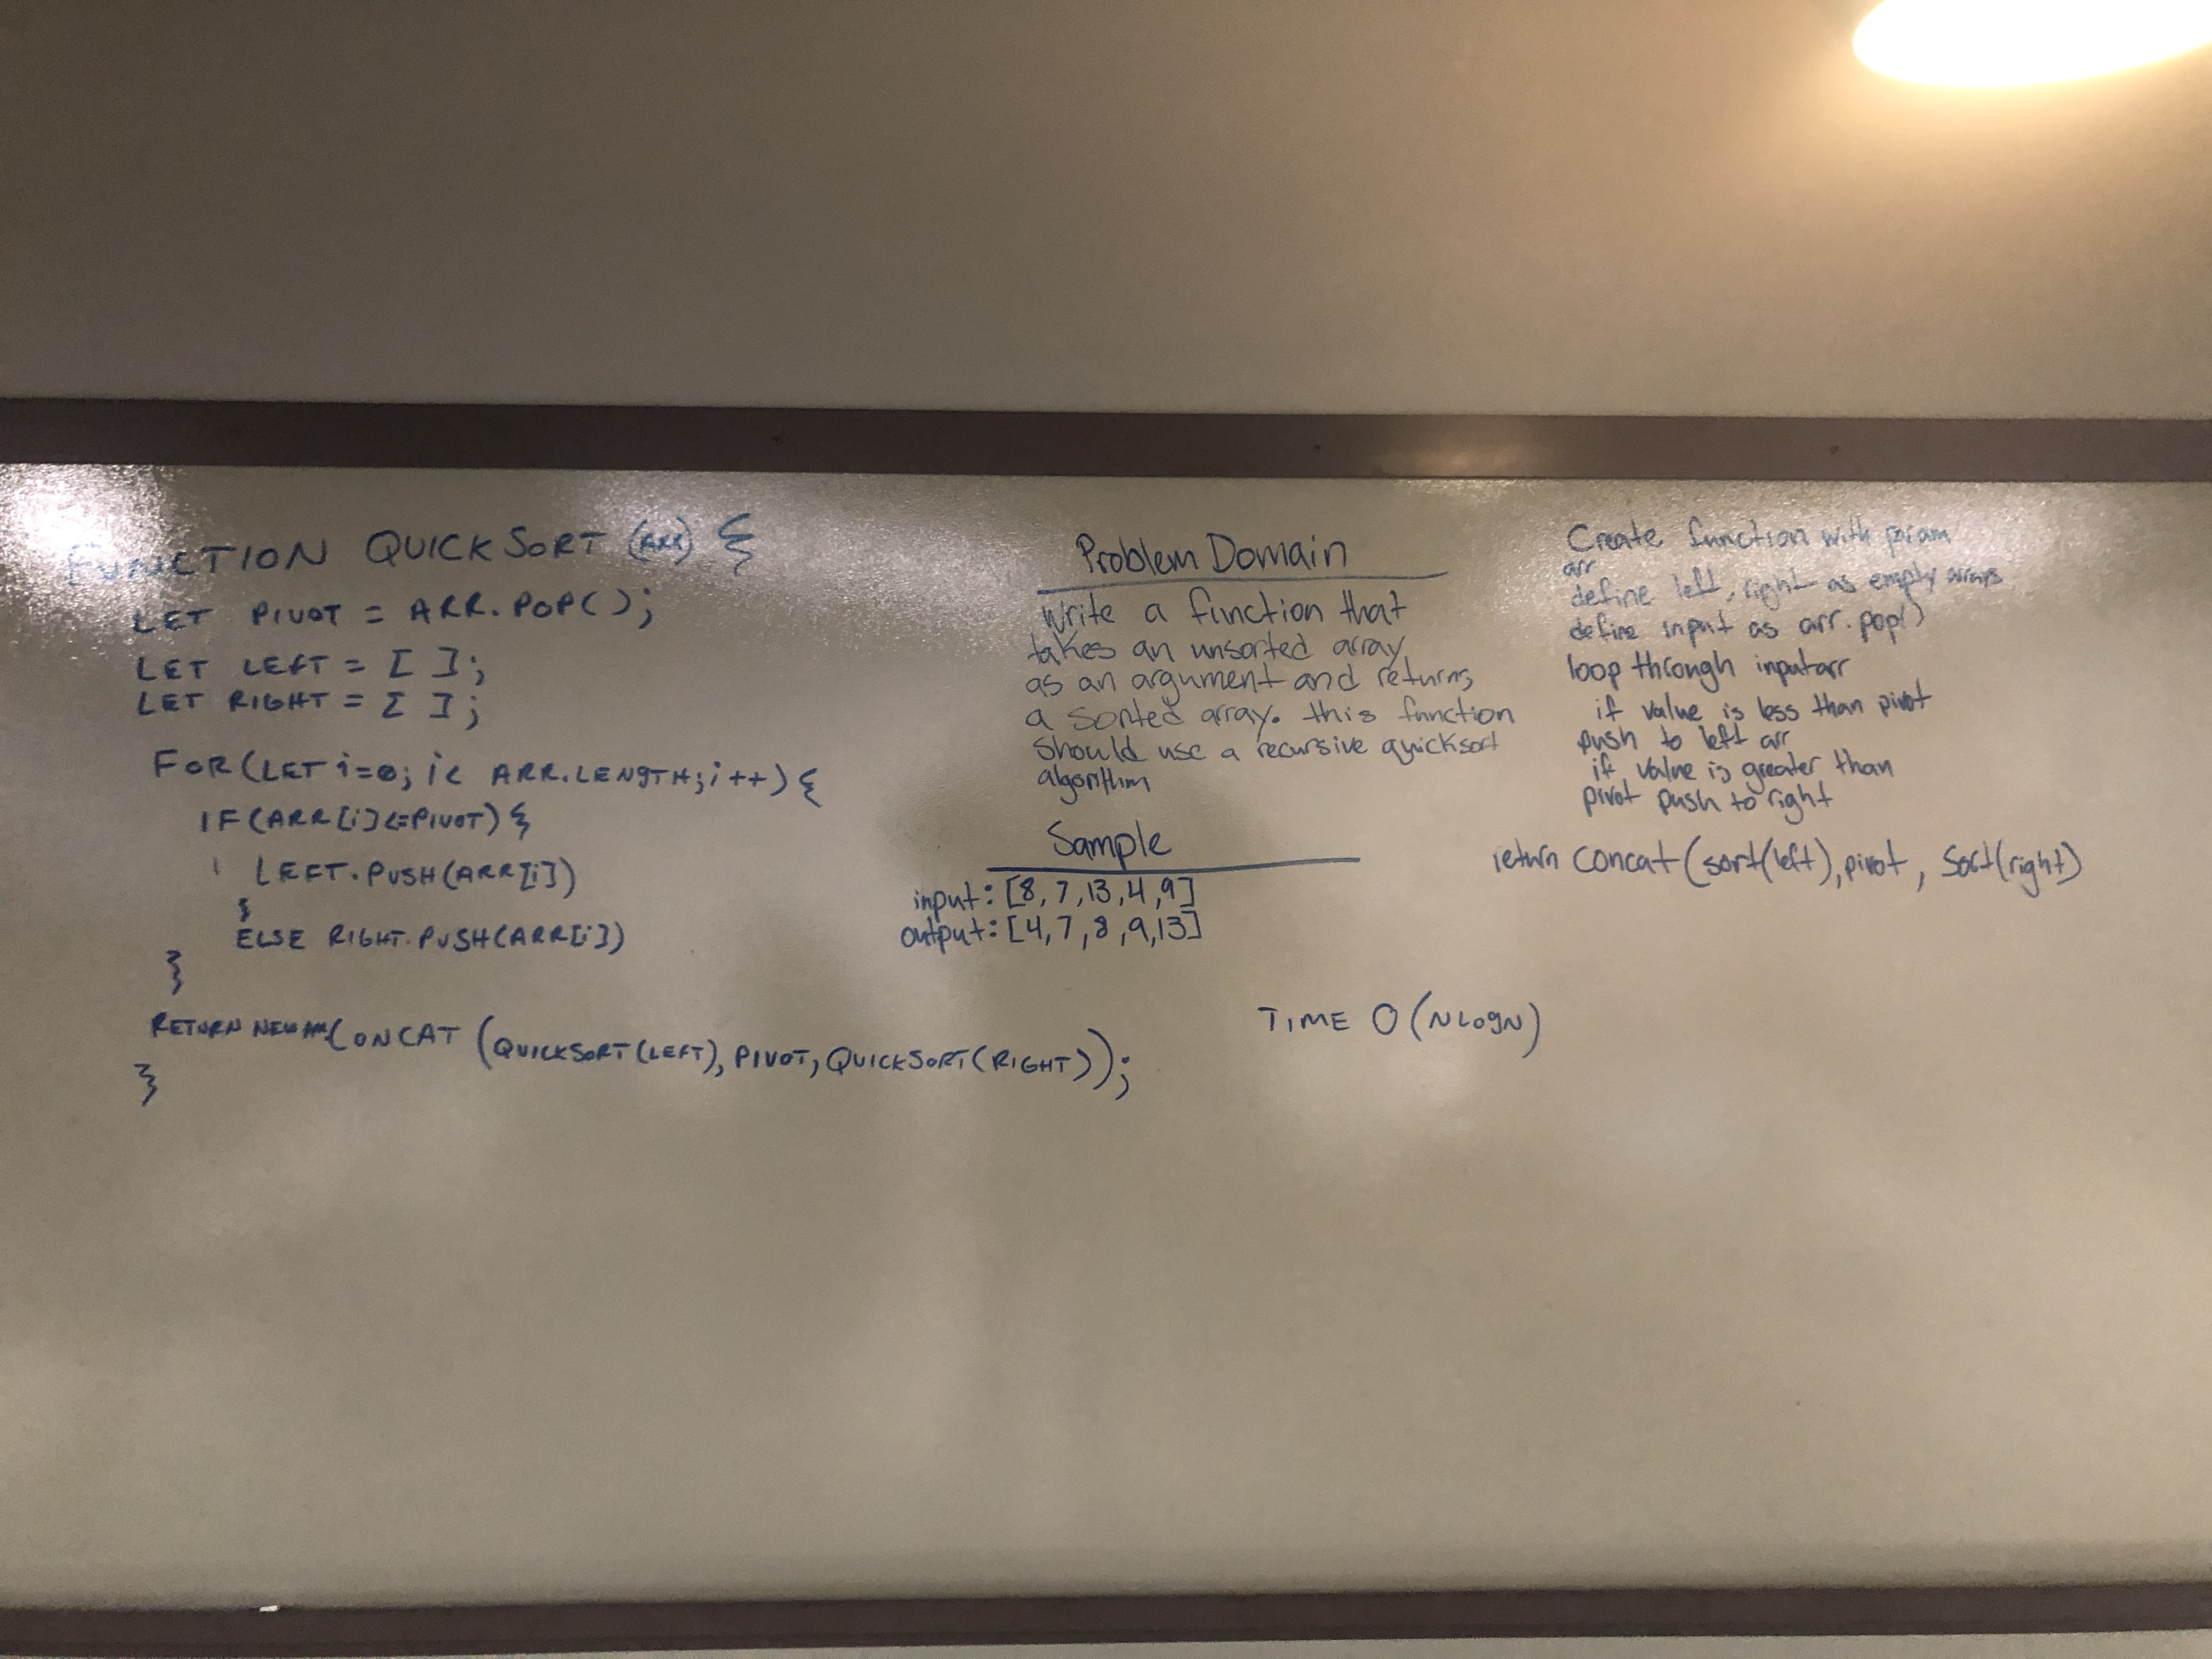 FUNCTION QUICKSORT (ARR) {
LET PIVOT = ARR.POP();
LET LEFT = [ ];
LET RIGHT = [ ];
FOR(LET i=0; i< ARR.LENGTH; i++){
IF(ARR[i]<=PIVOT) {
LEFT.PUSH(ARR[i])
}
ELSE RIGHT.PUSH(ARR[i])
}
RETURN NEWARR CONCAT (QUICKSORT(LEFT), PIVOT, QUICKSORT(RIGHT));
}
Problem Domain
Write a function that
takes an unsorted array
as an argument and returns
a sorted array. this function
should use a recursive quicksort
algorithm
Sample
input: [8, 7, 13, 4, 9]
output: [4, 7, 8, 9, 13]
TIME O(NLOGN)
Create function with param
arr
define left, right as empty arrays
define input as arr.pop()
loop through inputarr
if value is less than pivot
push to left arr
if value is greater than
pivot push to right
return concat(sort(left), pivot, Sort(right)